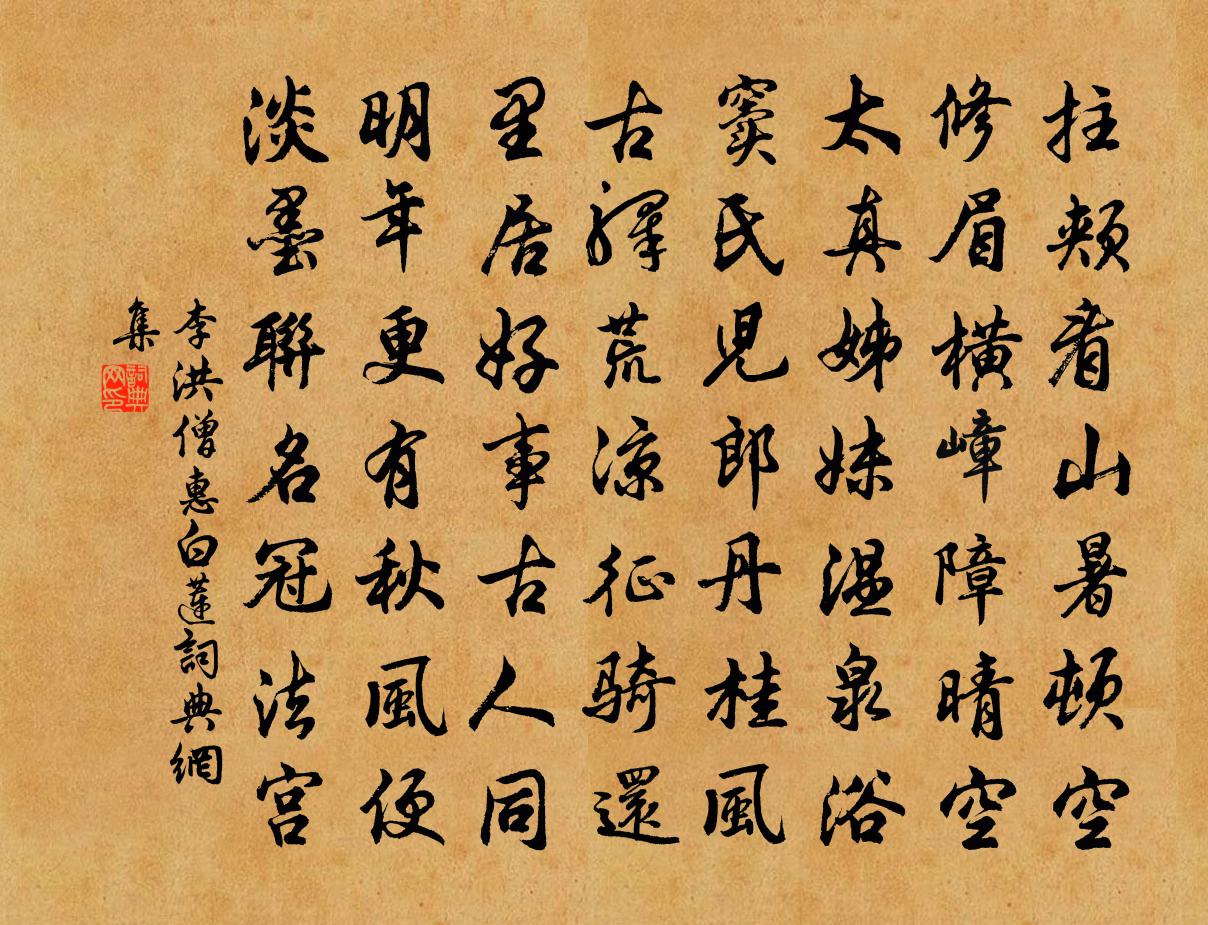 拄頰看山暑頓空
修眉橫嶂障晴空
太真姊妹温泉浴
竇氏児郎丹桂風
古驛荒凉征騎還
里居好事古人同
明年更有秋風便
淡墨聯名冠法宮
李洪僧惠白蓮詞典網
集
詞典
网印